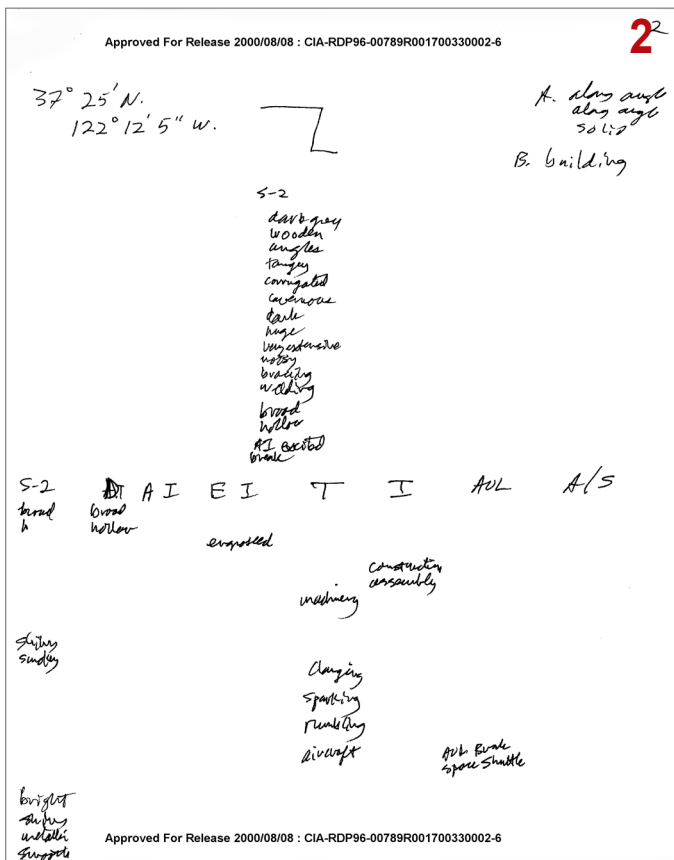 Approved For Release 2000/08/08 : CIA-RDP96-00789R001700330002-6
2 2
37° 25' N.
122° 12' 5" W.
A. along angle
along angle
solid
B. building
S-2
dark grey
wooden
angles
tangy
corrugated
cavernous
dark
huge
very extensive
noisy
bracing
welding
broad
hollow
AI excited
break
S-2 AI EI T I AOL A/S
broad broad
h hollow
engrossed
construction
assembly
machinery
shiny
clanging
sparking
rumbling
aircraft
AOL Break
space shuttle
bright
shiny
metallic
smooth
Approved For Release 2000/08/08 : CIA-RDP96-00789R001700330002-6